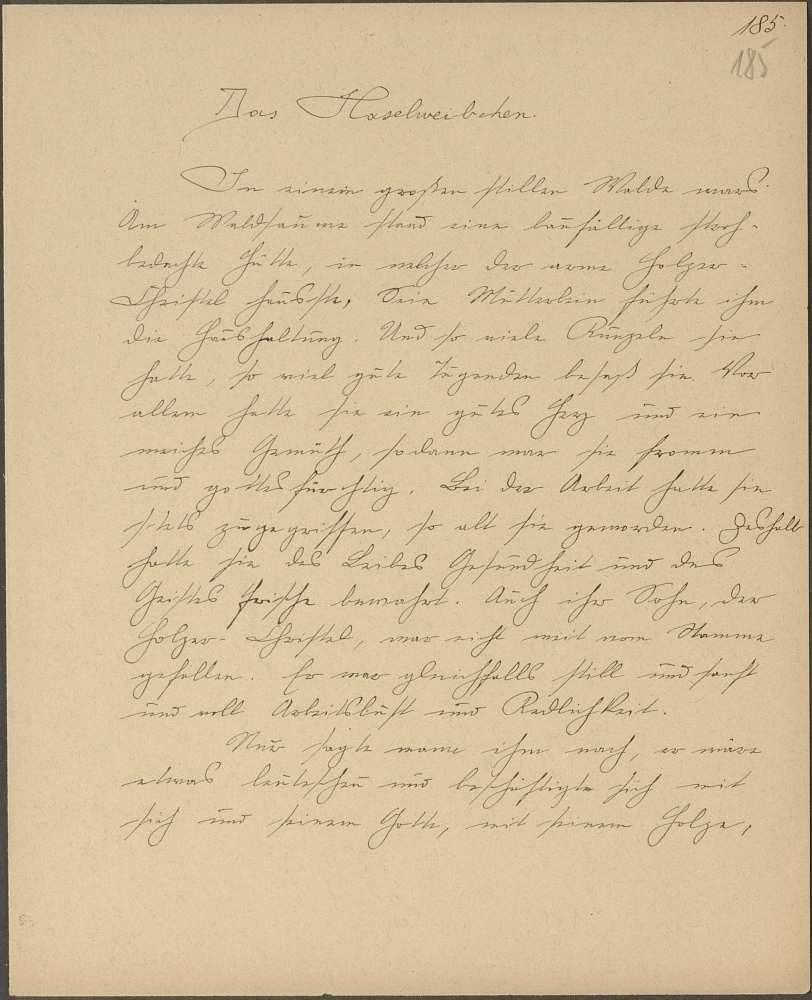 185.
185
Das Haselweibchen.
In einem großen stillen Walde wars.
Am Waldsaume stand eine baufällige stroh-
bedeckte Hütte, in welcher der arme Holzer-
Christel hauste, Sein Mütterlein führte ihm
die Haushaltung. Und so viele Runzeln sie
hatte, so viel gute Tugenden besaß sie. Vor
allem hatte sie ein gutes Herz und ein
weiches Gemüth, sodann war sie fromm
und gottesfürchtig. Bei der Arbeit hatte sie
stets zugegriffen, so alt sie geworden. Deshalb
hatte sie des Leibes Gesundheit und des
Geistes Frische bewahrt. Auch ihr Sohn, der
Holzer-Christel, war nicht weit vom Stamme
gefallen. Er war gleichfalls still und sanft
und voll Arbeitslust und Redlichkeit.
Nur sagte mann ihm nach, er wäre
etwas leutescheu und beschäftigte sich mit
sich und seinem Gotte, mit seinem Holze,